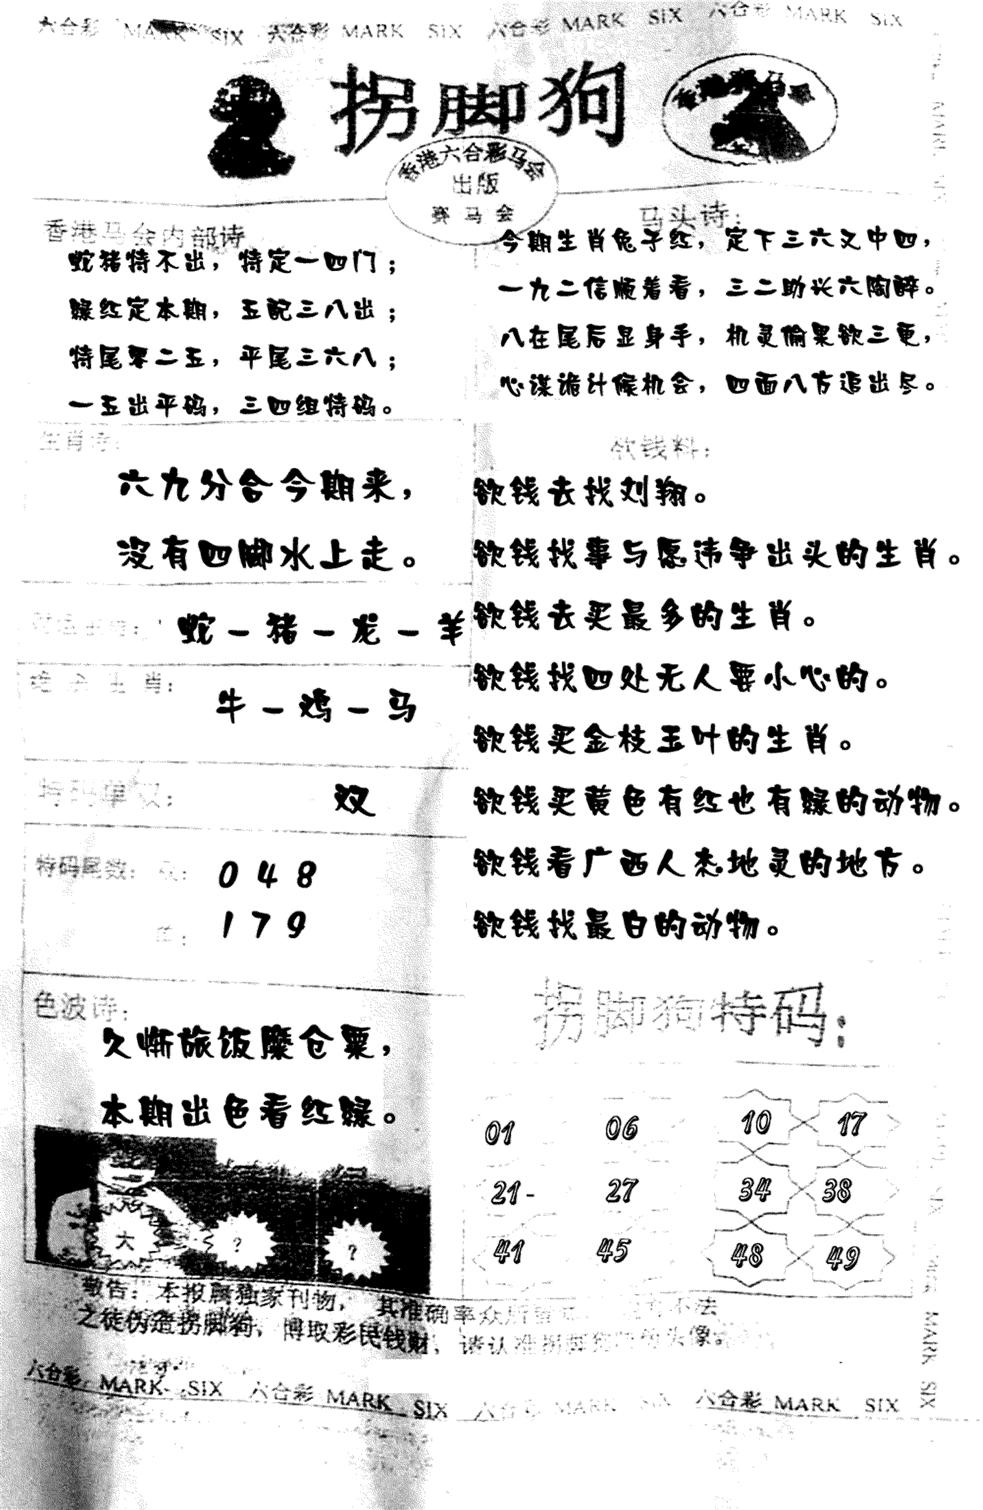 六合彩 MARK SIX 六合彩 MARK SIX 六合彩 MARK SIX 六合彩 MARK SIX
拐脚狗
香港赛马会
香港六合彩马会
出版
赛马会
香港马会内部诗
蛇猪特不出，特定一四门；
绿红定本期，五配三八出；
特尾零二五，平尾三六八；
一五出平码，三四组特码。
马头诗：
今期生肖兔子红，定下三六又中四，
一九二信顺着看，三二助兴六陶醉。
八在尾后显身手，机灵偷果欲三更，
心谋诡计候机会，四面八方追出尽。
生肖诗：
六九分合今期来，
没有四脚水上走。
蛇－猪－龙－羊
绝杀生肖：
牛－鸡－马
特码单双：
双
特码尾数：双：
0 4 8
单：
1 7 9
色波诗：
久惭旅饭縻仓粟，
本期出色看红绿。
大 ? ?
欲钱料：
欲钱去找刘翔。
欲钱找事与愿违争出头的生肖。
欲钱去买最多的生肖。
欲钱找四处无人要小心的。
欲钱买金枝玉叶的生肖。
欲钱买黄色有红也有绿的动物。
欲钱看广西人杰地灵的地方。
欲钱找最白的动物。
拐脚狗特码：
01 06 10 17
21- 27 34 38
41 45 48 49
敬告：本报属独家刊物，其准确率众所 不法
之徒伪造拐脚狗，博取彩民钱财，请认准拐脚狗 头像。
六合彩 MARK SIX 六合彩 MARK SIX 六合彩 MARK SIX 六合彩 MARK SIX
MARK SIX